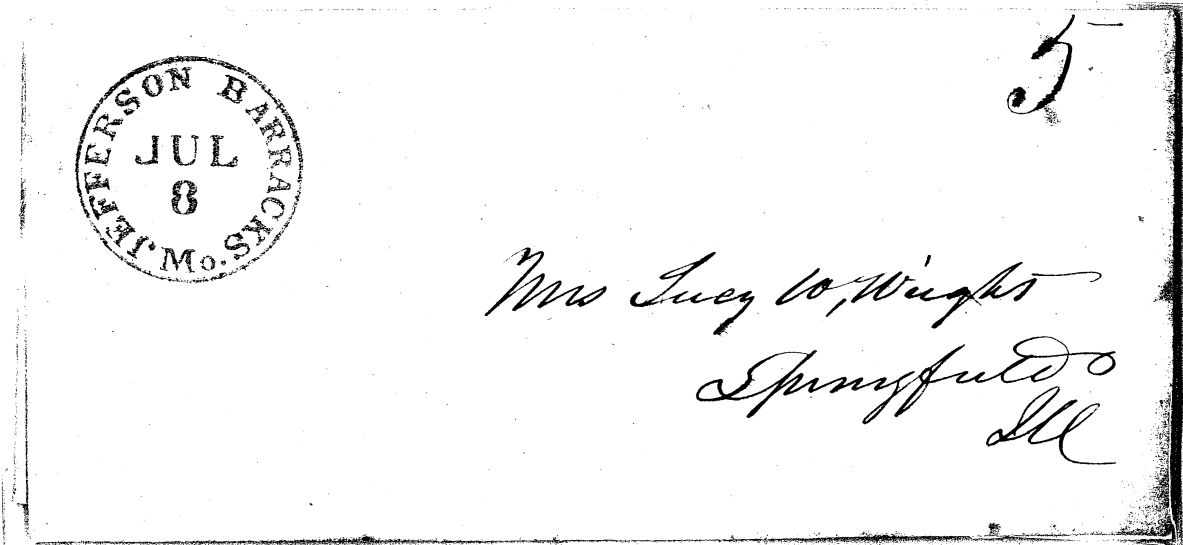 JEFFERSON BARRACKS. Mo.
JUL
8
5
Mrs Lucy W, Wright
Springfield
Ill